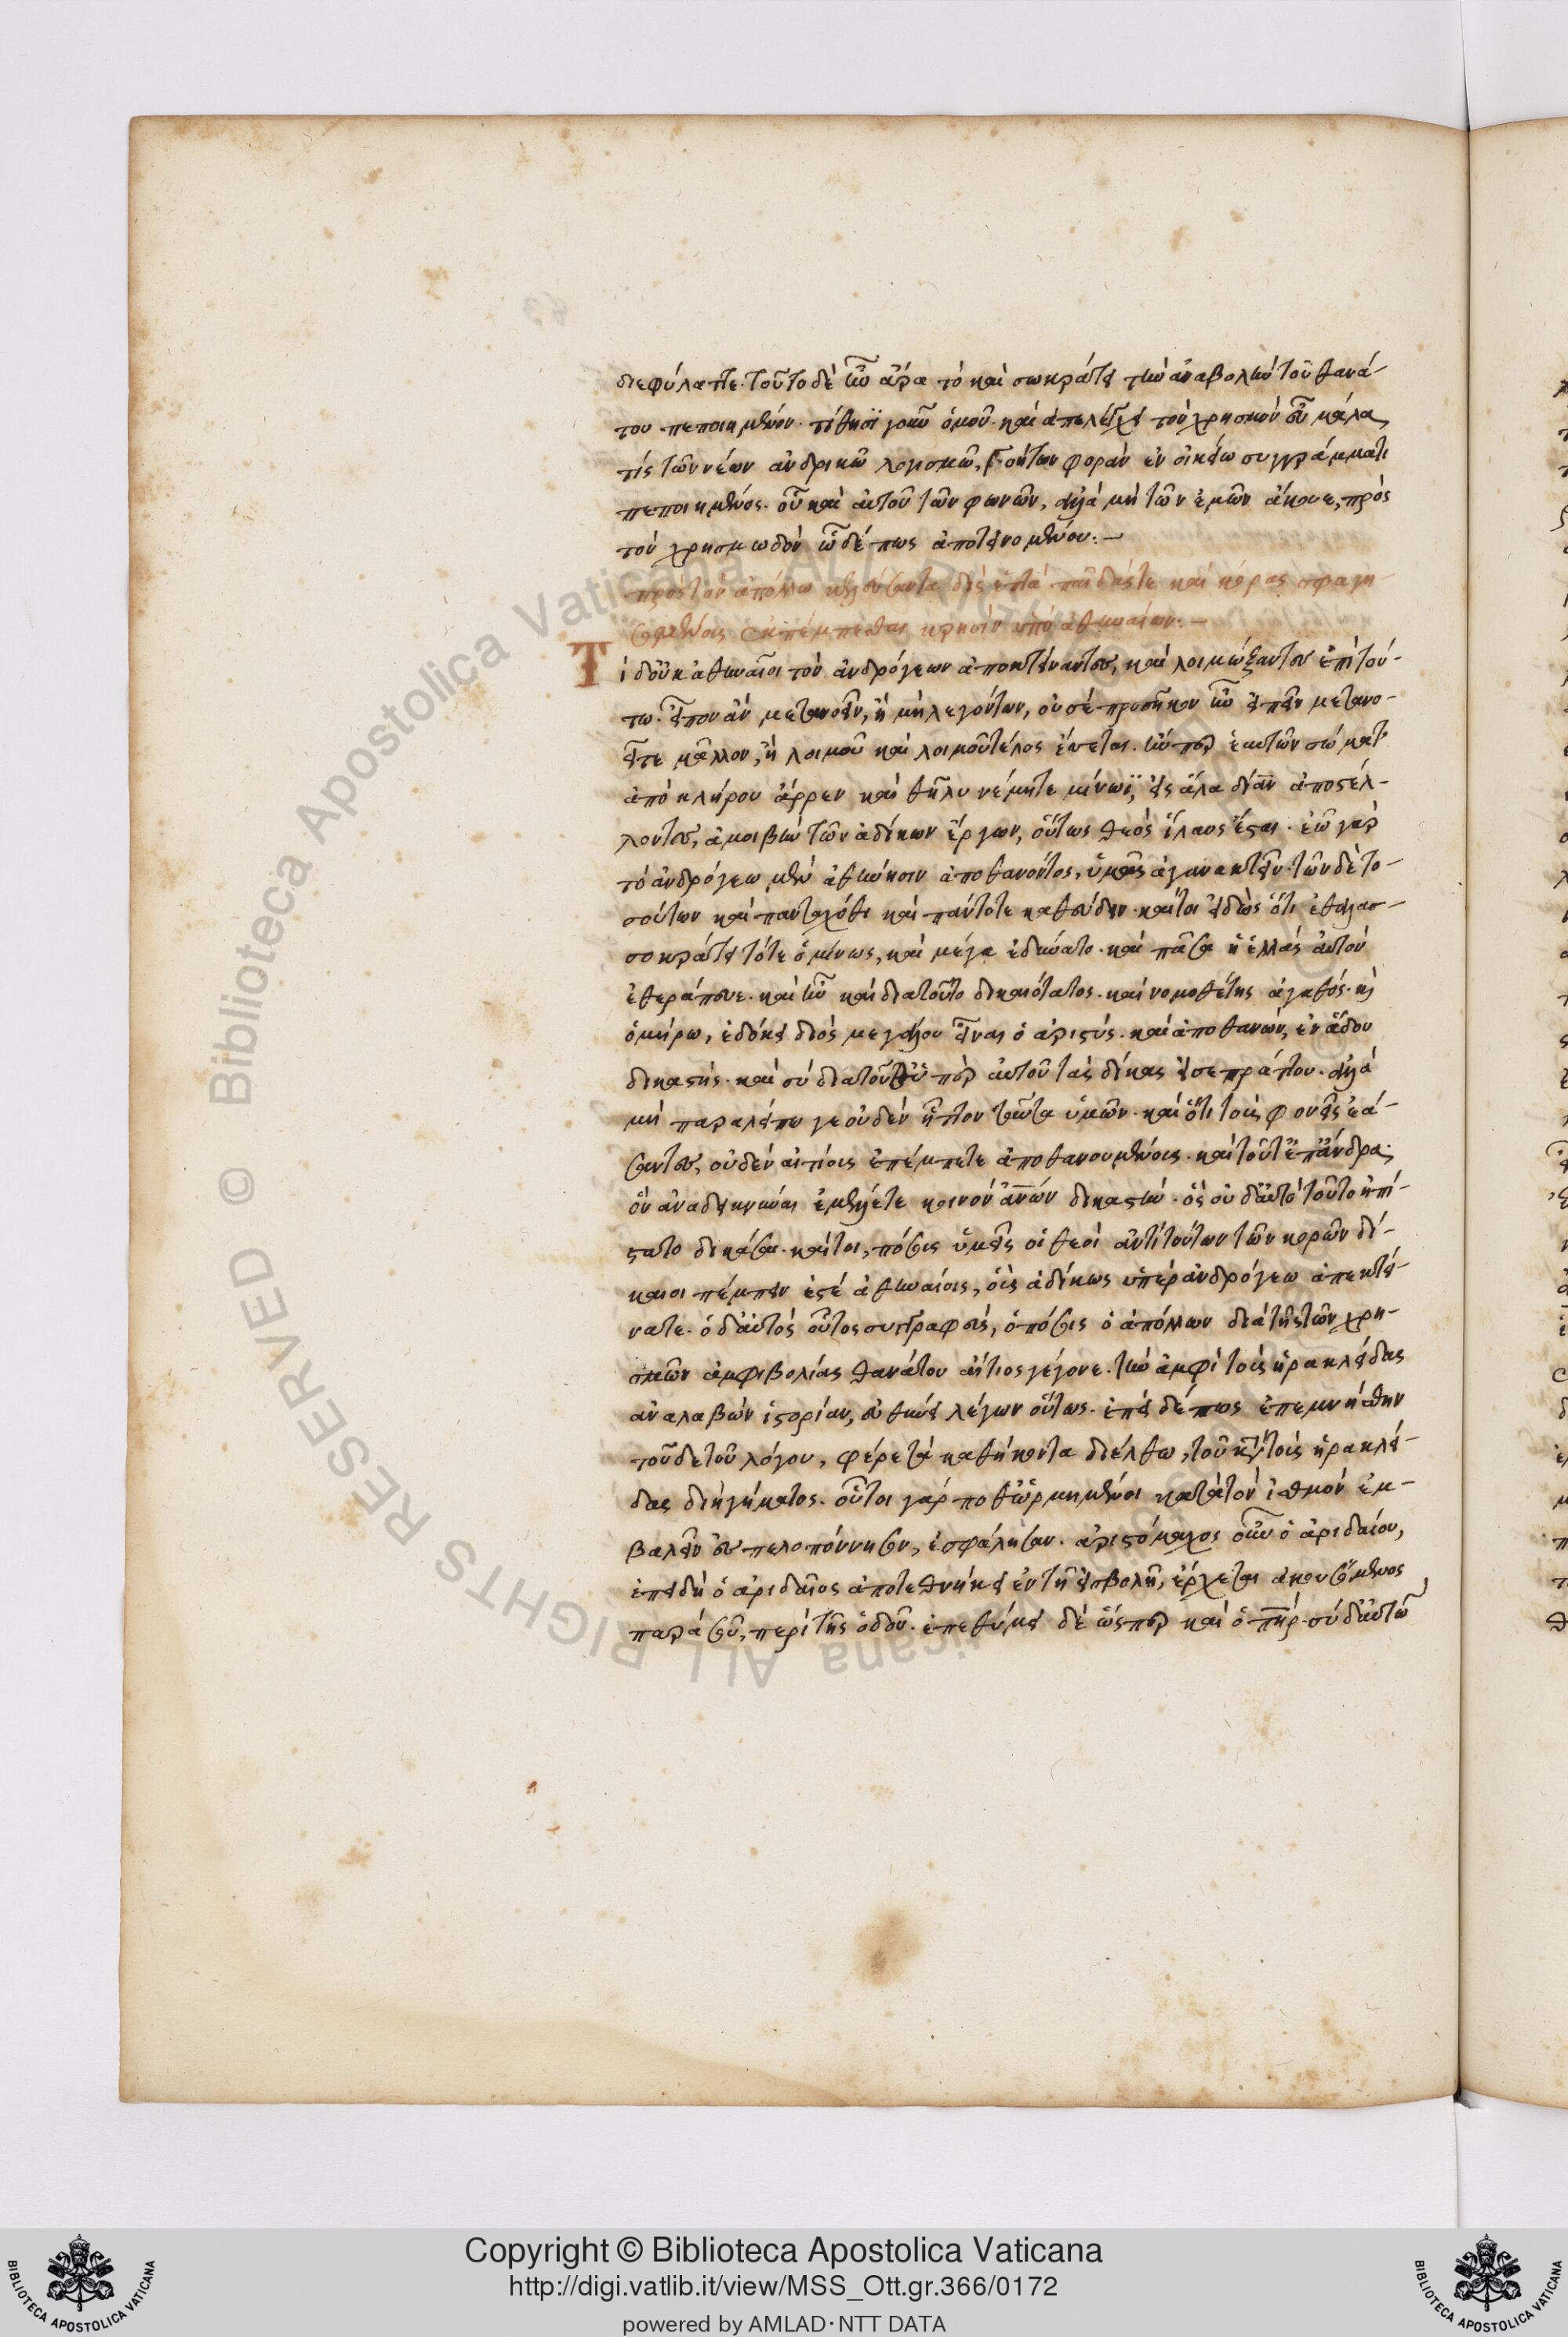 διεφύλαττε. τοῦτο δὲ ἦν ἄρα τὸ καὶ σωκράτει τὴν ἀναβολὴν τοῦ θανά-
του πεποιημένον. τίθησι γοῦν ὁμοῦ καὶ ἀπελέγχει τὸν χρησμὸν εὖ μάλα
τίς τῶν νέων ἀνδρικῶ λογισμῶ, τούτων φορὰν ἐν οἰκείω συγγράμματι
πεποιημένος. οὗ καὶ αὐτοῦ τῶν φωνῶν, ἀλλὰ μὴ τῶν ἐμῶν ἄκουε, πρὸς
τὸν χρησμωδὸν ὧδέ πως ἀποτεινομένου:—
πρὸς τὸν ἀπόλλω κελεύσαντα δὶς ἑπτὰ παῖδάς τε καὶ κόρας
ἐκπέμπεσθαι ὑπὸ ἀθηναίων:—
Τί δ' οὐκ ἀθηναῖοι τὸν ἀνδρόγεων ἀποκτείναντες, καὶ λοιμώξαντες ἐπὶ τού-
τω. εἶπον ἂν μετανοεῖν, ἢ μὴ λεγόντων, οὐ σέ προσῆκον ἦν εἰπεῖν μετανο-
εῖτε μᾶλλον, ἢ λοιμοῦ καὶ λοιμοῦ τέλος ἔσεται. ἤνπερ ἑαυτῶν σώματ'
ἀπὸ κλήρου ἄρρεν καὶ θῆλυ νέμητε μίνωϊ, εἰς ἅλα δῖαν ἀποστέλ-
λοντες, ἀμοιβὴν τῶν ἀδίκων ἔργων, οὕτως θεὸς ἵλαος ἔσται. ἐῶ γὰρ
τὸ ἀνδρόγεω μὲν ἀθήνησιν ἀποθανόντος, ὑμᾶς ἀγανακτεῖν. τῶν δὲ το-
σούτων καὶ πανταχόθι καὶ πάντοτε καθεύδειν. καίτοι εἰδὼς ὅτι ἐθαλασ-
σοκράτει τότε ὁ μίνως, καὶ μέγα ἐδύνατο. καὶ πᾶσα ἡ ἑλλὰς αὐτὸν
ἐθεράπευε. καὶ ἦν καὶ διατοῦτο δικαιότατος. καὶ νομοθέτης ἀγαθός. καὶ
ὁμήρω, ἐδόκει διὸς μεγάλου εἶναι ὀαριστύς. καὶ ἀποθανὼν, ἐν ἅδου
δικαστής. καὶ σὺ διατοῦτο ὑπὲρ αὐτοῦ τὰς δίκας εἰσεπράττου. ἀλλὰ
μὴ παραλείπω γε οὐδὲν ἧττον ταῦτα ὑμῶν. καὶ ὅτι τοὺς φονεῖς ἐά-
σαντες, οὐδὲν αἰτίους ἐπέμπετε ἀποθανουμένους. καὶ τοῦτ' ἐπ' ἄνδρα.
ὃν ἀναδεικνύναι ἐμέλλετε κοινὸν ἀνῶν δικαστήν. ὃς οὐδ' αὐτὸ τοῦτο ἠπί-
στατο δικάσαι. καίτοι, πόσους ὑμεῖς οἱ θεοὶ ἀντὶ τούτων τῶν κορῶν δί-
καιοι πέμπειν ἐστέ ἀθηναίοις, οὓς ἀδίκως ὑπὲρ ἀνδρόγεω ἀπεκτεί-
νατε. ὁ δ' αὐτὸς οὗτος συγγραφεὺς, ὁπόσοις ὁ ἀπόλλων διὰ τῆς τῶν χρη-
σμῶν ἀμφιβολίας θανάτου αἴτιος γέγονε. τὴν ἀμφὶ τοὺς ἡρακλείδας
ἀναλαβὼν ἱστορίαν, εὐθύνει λέγων οὕτως. ἐπεὶ δέ πως ἐπεμνήσθην
τοῦδε τοῦ λόγου, φέρε τὰ καθήκοντα διέλθω, τοῦ κατὰ τοὺς ἡρακλεί-
δας διηγήματος. οὗτοι γάρ ποθ' ὡρμημένοι κατὰ τὸν ἰσθμὸν ἐμ-
βαλεῖν εἰς πελοπόννησον, ἐσφάλησαν. ἀριστόμαχος οὖν ὁ ἀριδαίου,
ἐπειδὴ ὁ ἀριδαῖος ἀποτεθνήκει ἐν τῆ εἰσβολῆ, ἔρχεται ἀκουσόμενος
παρὰ σοῦ, περὶ τῆς ὁδοῦ. ἐπεθύμει δὲ ὥσπερ καὶ ὁ πῆρ. σὺ δ' αὐτῶ
Copyright © Biblioteca Apostolica Vaticana
http://digi.vatlib.it/view/MSS_Ott.gr.366/0172
powered by AMLAD·NTT DATA
BIBLIOTECA APOSTOLICA VATICANA
BIBLIOTECA APOSTOLICA VATICANA
Biblioteca Apostolica Vaticana ALL RIGHTS RESERVED ©